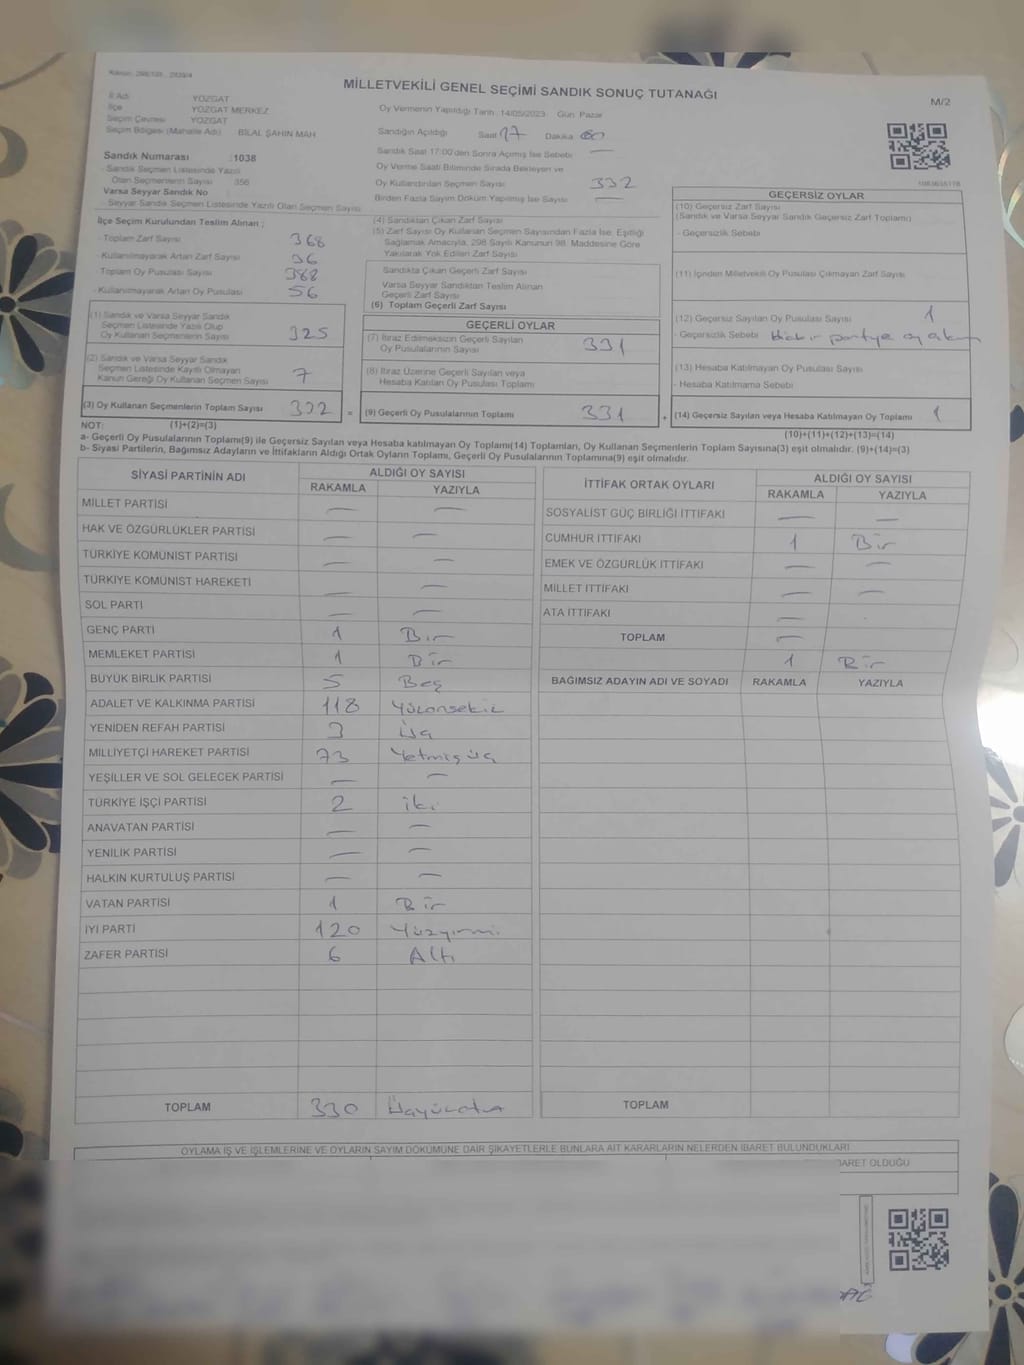 Kanun: 298/105 , 2839/4
MİLLETVEKİLİ GENEL SEÇİMİ SANDIK SONUÇ TUTANAĞI
M/2
İl Adı YOZGAT
İlçe YOZGAT MERKEZ
Seçim Çevresi YOZGAT
Seçim Bölgesi (Mahalle Adı) BİLAL ŞAHİN MAH
Sandık Numarası :1038
- Sandık Seçmen Listesinde Yazılı
Olan Seçmenlerin Sayısı 356
Varsa Seyyar Sandık No
- Seyyar Sandık Seçmen Listesinde Yazılı Olan Seçmen Sayısı
Oy Vermenin Yapıldığı Tarih: 14/05/2023 Gün: Pazar
Sandığın Açıldığı Saat 17 Dakika 00
Sandık Saat 17:00'den Sonra Açılmış İse Sebebi: —
Oy Verme Saati Bitiminde Sırada Bekleyen ve
Oy Kullandırılan Seçmen Sayısı 332
Birden Fazla Sayım Döküm Yapılmış İse Sayısı —
İlçe Seçim Kurulundan Teslim Alınan ;
- Toplam Zarf Sayısı 368
- Kullanılmayarak Artan Zarf Sayısı 36
Toplam Oy Pusulası Sayısı 388
- Kullanılmayarak Artan Oy Pusulası 56
(1) Sandık ve Varsa Seyyar Sandık
Seçmen Listesinde Yazılı Olup
Oy Kullanan Seçmenlerin Sayısı 325
(2) Sandık ve Varsa Seyyar Sandık
Seçmen Listesinde Kayıtlı Olmayan
Kanun Gereği Oy Kullanan Seçmen Sayısı 7
(3) Oy Kullanan Seçmenlerin Toplam Sayısı 332 =
(4) Sandıktan Çıkan Zarf Sayısı
(5) Zarf Sayısı Oy Kullanan Seçmen Sayısından Fazla İse, Eşitliği
Sağlamak Amacıyla, 298 Sayılı Kanunun 98. Maddesine Göre
Yakılarak Yok Edilen Zarf Sayısı
Sandıkta Çıkan Geçerli Zarf Sayısı
Varsa Seyyar Sandıktan Teslim Alınan
Geçerli Zarf Sayısı
(6) Toplam Geçerli Zarf Sayısı
GEÇERLİ OYLAR
(7) İtiraz Edilmeksizin Geçerli Sayılan
Oy Pusulalarının Sayısı 331
(8) İtiraz Üzerine Geçerli Sayılan veya
Hesaba Katılan Oy Pusulası Toplamı
(9) Geçerli Oy Pusulalarının Toplamı 331 +
GEÇERSİZ OYLAR
(10) Geçersiz Zarf Sayısı
(Sandık ve Varsa Seyyar Sandık Geçersiz Zarf Toplamı)
- Geçersizlik Sebebi
(11) İçinden Milletvekili Oy Pusulası Çıkmayan Zarf Sayısı
(12) Geçersiz Sayılan Oy Pusulası Sayısı 1
- Geçersizlik Sebebi partiye oy
(13) Hesaba Katılmayan Oy Pusulası Sayısı
- Hesaba Katılmama Sebebi
(14) Geçersiz Sayılan veya Hesaba Katılmayan Oy Toplamı 1
NOT: (1)+(2)=(3)
(10)+(11)+(12)+(13)=(14)
a- Geçerli Oy Pusulalarının Toplamı(9) ile Geçersiz Sayılan veya Hesaba katılmayan Oy Toplamı(14) Toplamları, Oy Kullanan Seçmenlerin Toplam Sayısına(3) eşit olmalıdır. (9)+(14)=(3)
b- Siyasi Partilerin, Bağımsız Adayların ve İttifakların Aldığı Ortak Oyların Toplamı, Geçerli Oy Pusulalarının Toplamına(9) eşit olmalıdır.
SİYASİ PARTİNİN ADI ALDIĞI OY SAYISI
RAKAMLA YAZIYLA
MİLLET PARTİSİ — —
HAK VE ÖZGÜRLÜKLER PARTİSİ — —
TÜRKİYE KOMÜNİST PARTİSİ — —
TÜRKİYE KOMÜNİST HAREKETİ — —
SOL PARTİ — —
GENÇ PARTİ 1 Bir
MEMLEKET PARTİSİ 1 Bir
BÜYÜK BİRLİK PARTİSİ 5 Beş
ADALET VE KALKINMA PARTİSİ 118 Yüzonsekiz
YENİDEN REFAH PARTİSİ 3 Üç
MİLLİYETÇİ HAREKET PARTİSİ 73 Yetmişüç
YEŞİLLER VE SOL GELECEK PARTİSİ — —
TÜRKİYE İŞÇİ PARTİSİ 2 iki
ANAVATAN PARTİSİ — —
YENİLİK PARTİSİ — —
HALKIN KURTULUŞ PARTİSİ — —
VATAN PARTİSİ 1 Bir
İYİ PARTİ 120 Yüzyirmi
ZAFER PARTİSİ 6 Altı
TOPLAM 330 Üçyüzotuz
İTTİFAK ORTAK OYLARI ALDIĞI OY SAYISI
RAKAMLA YAZIYLA
SOSYALİST GÜÇ BİRLİĞİ İTTİFAKI — —
CUMHUR İTTİFAKI 1 Bir
EMEK VE ÖZGÜRLÜK İTTİFAKI — —
MİLLET İTTİFAKI — —
ATA İTTİFAKI —
TOPLAM —
1 Bir
BAĞIMSIZ ADAYIN ADI VE SOYADI RAKAMLA YAZIYLA
TOPLAM
OYLAMA İŞ VE İŞLEMLERİNE VE OYLARIN SAYIM DÖKÜMÜNE DAİR ŞİKAYETLERLE BUNLARA AİT KARARLARIN NELERDEN İBARET BULUNDUKLARI
BARET OLDUĞU